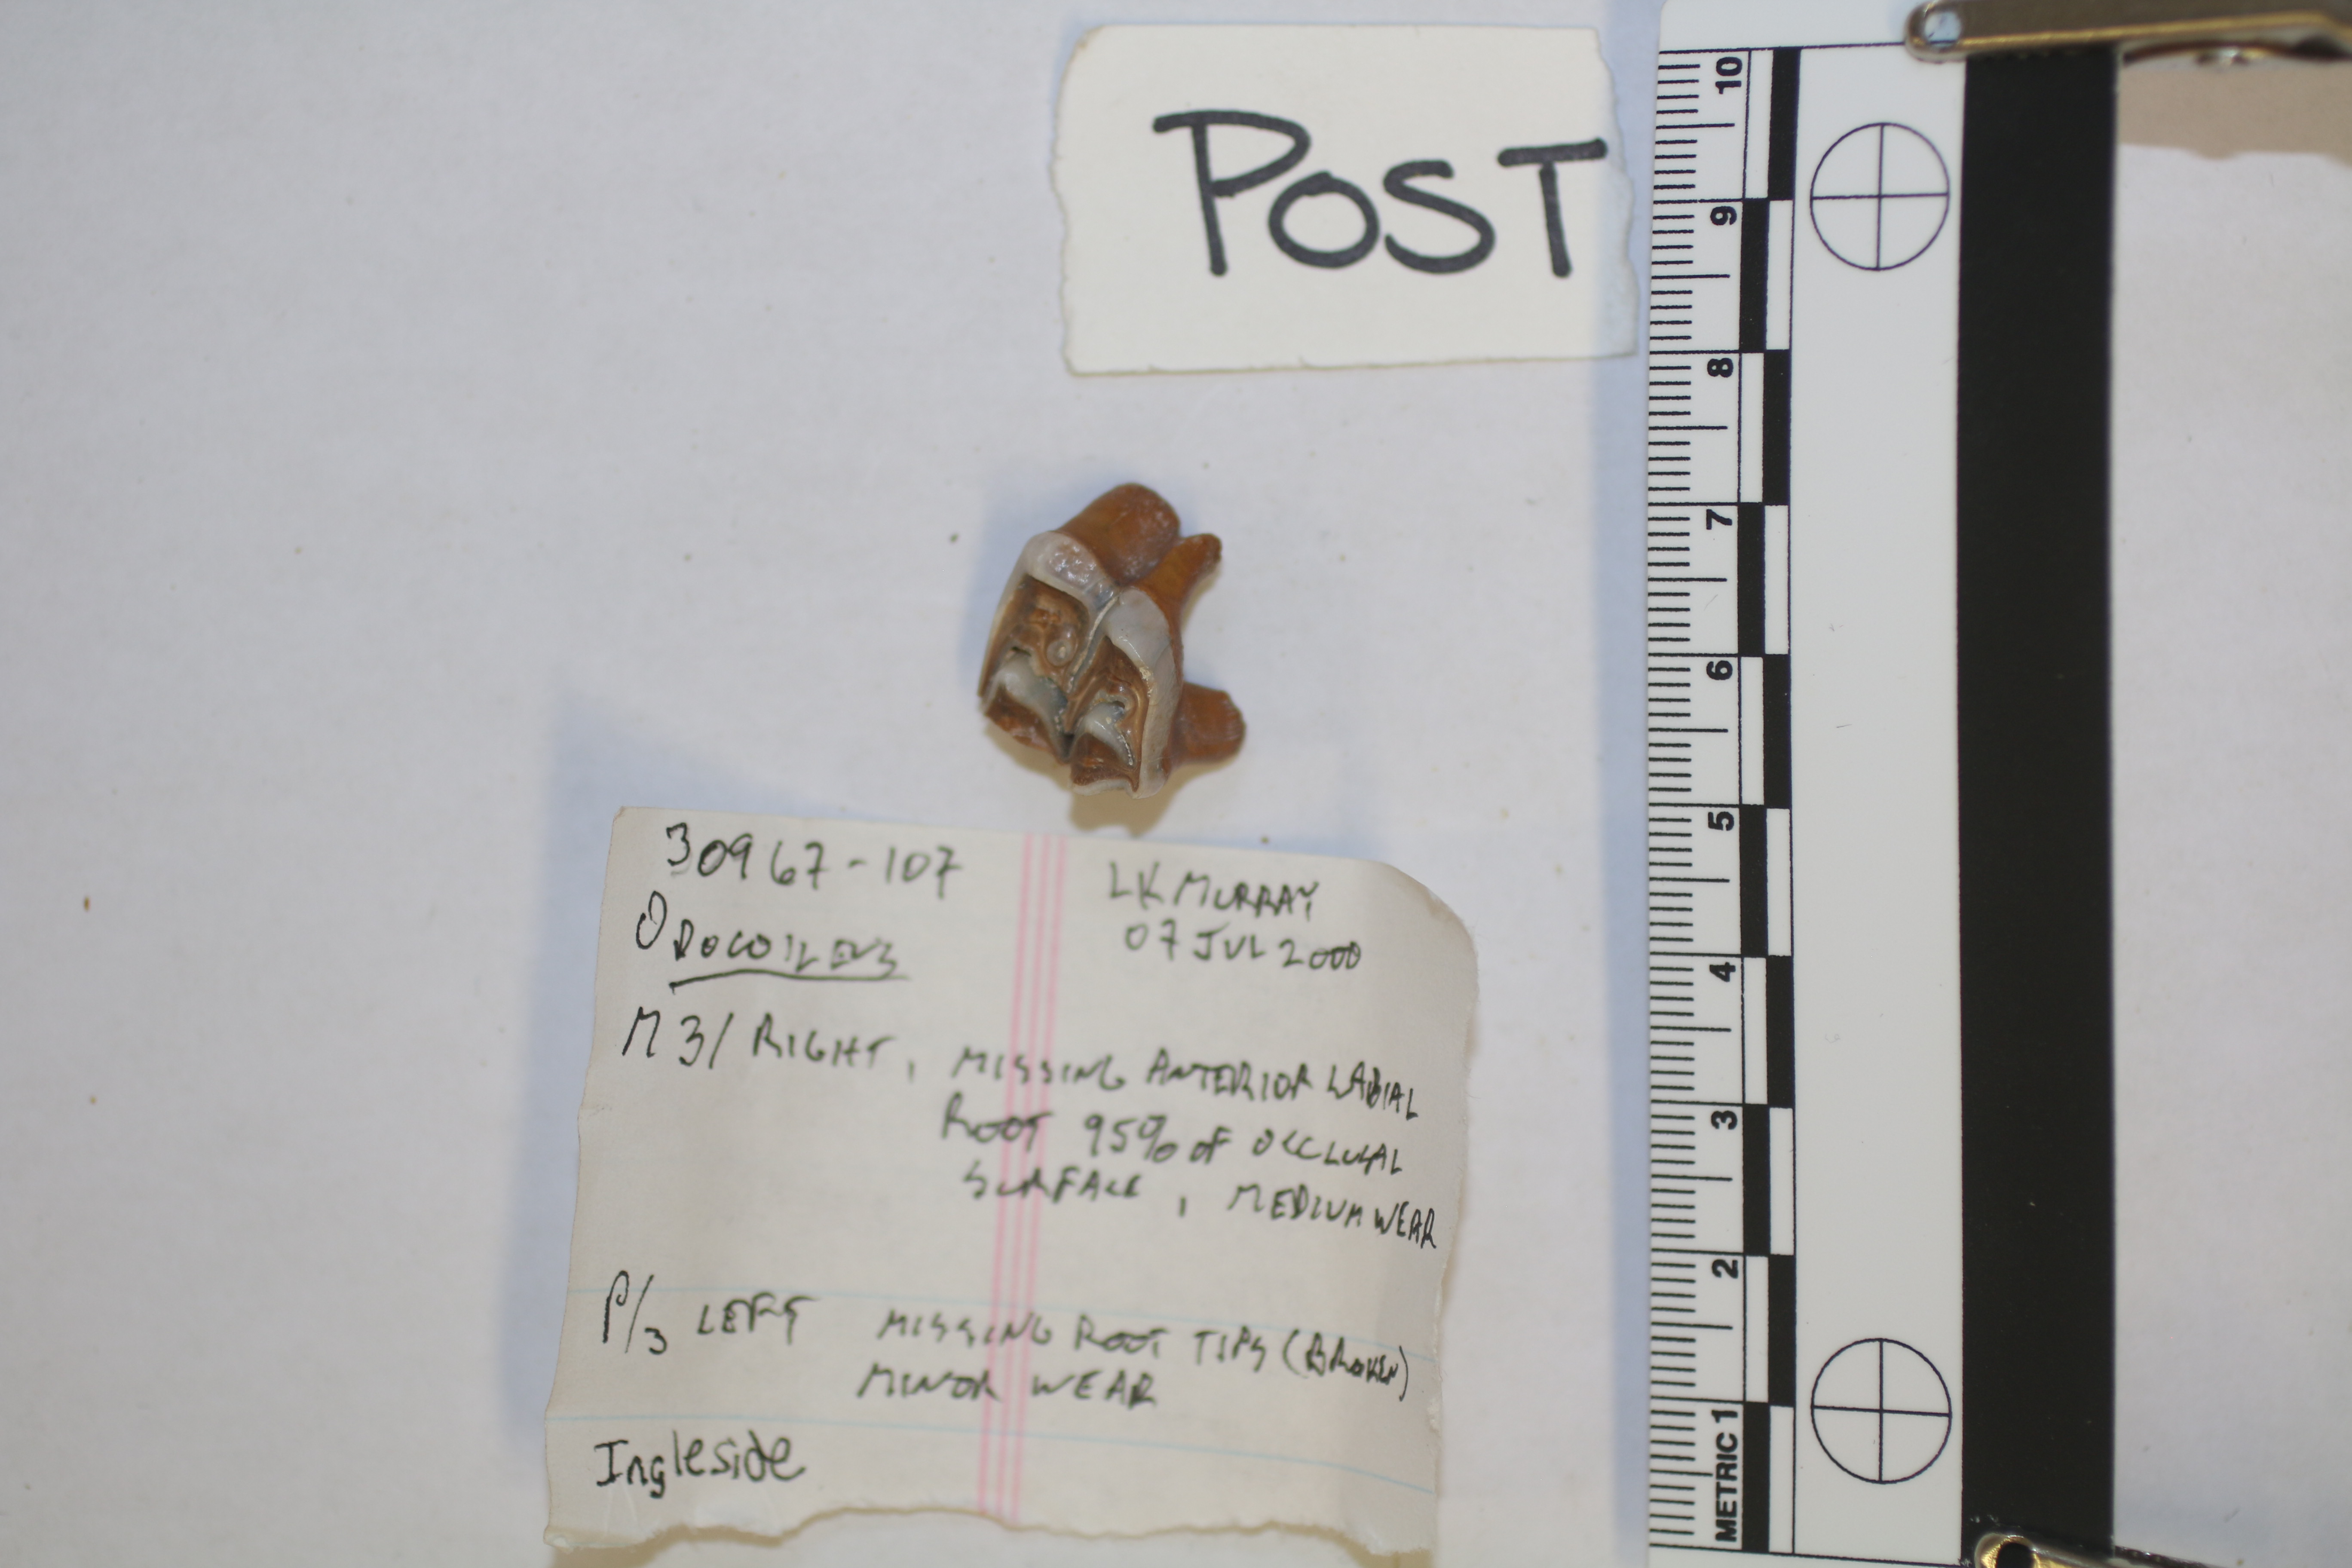 POST
30967-107
LK MURRAY
ODOCOILEUS
07 JUL 2000
M3/ RIGHT, MISSING ANTERIOR LABIAL
ROOT 95% OF OCCLUSAL
SURFACE, MEDIUM WEAR
P/3 LEFT MISSING ROOT TIPS (BROKEN)
MINOR WEAR
Ingleside
10
9
8
7
6
5
4
3
2
METRIC 1